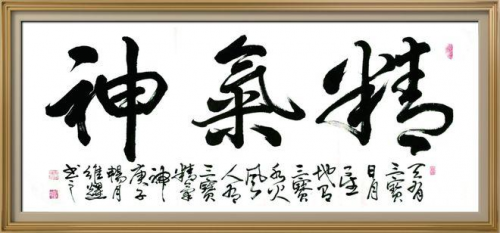 精氣神
天有
三寳
日月
星
地有
三寳
水火
風
人有
三寳
精氣
神
庚子
楊月
維
書之